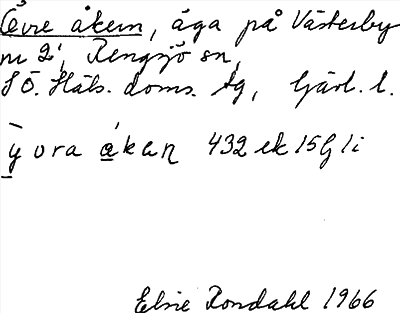 Övre åkern, äga på Västerby
nr 2, Rengsjö sn,
SÖ. Häls. doms. tg, Gävl. l.
ȳvra åkaɳ 432 ek 15G 1i
Elsie Rondahl 1966